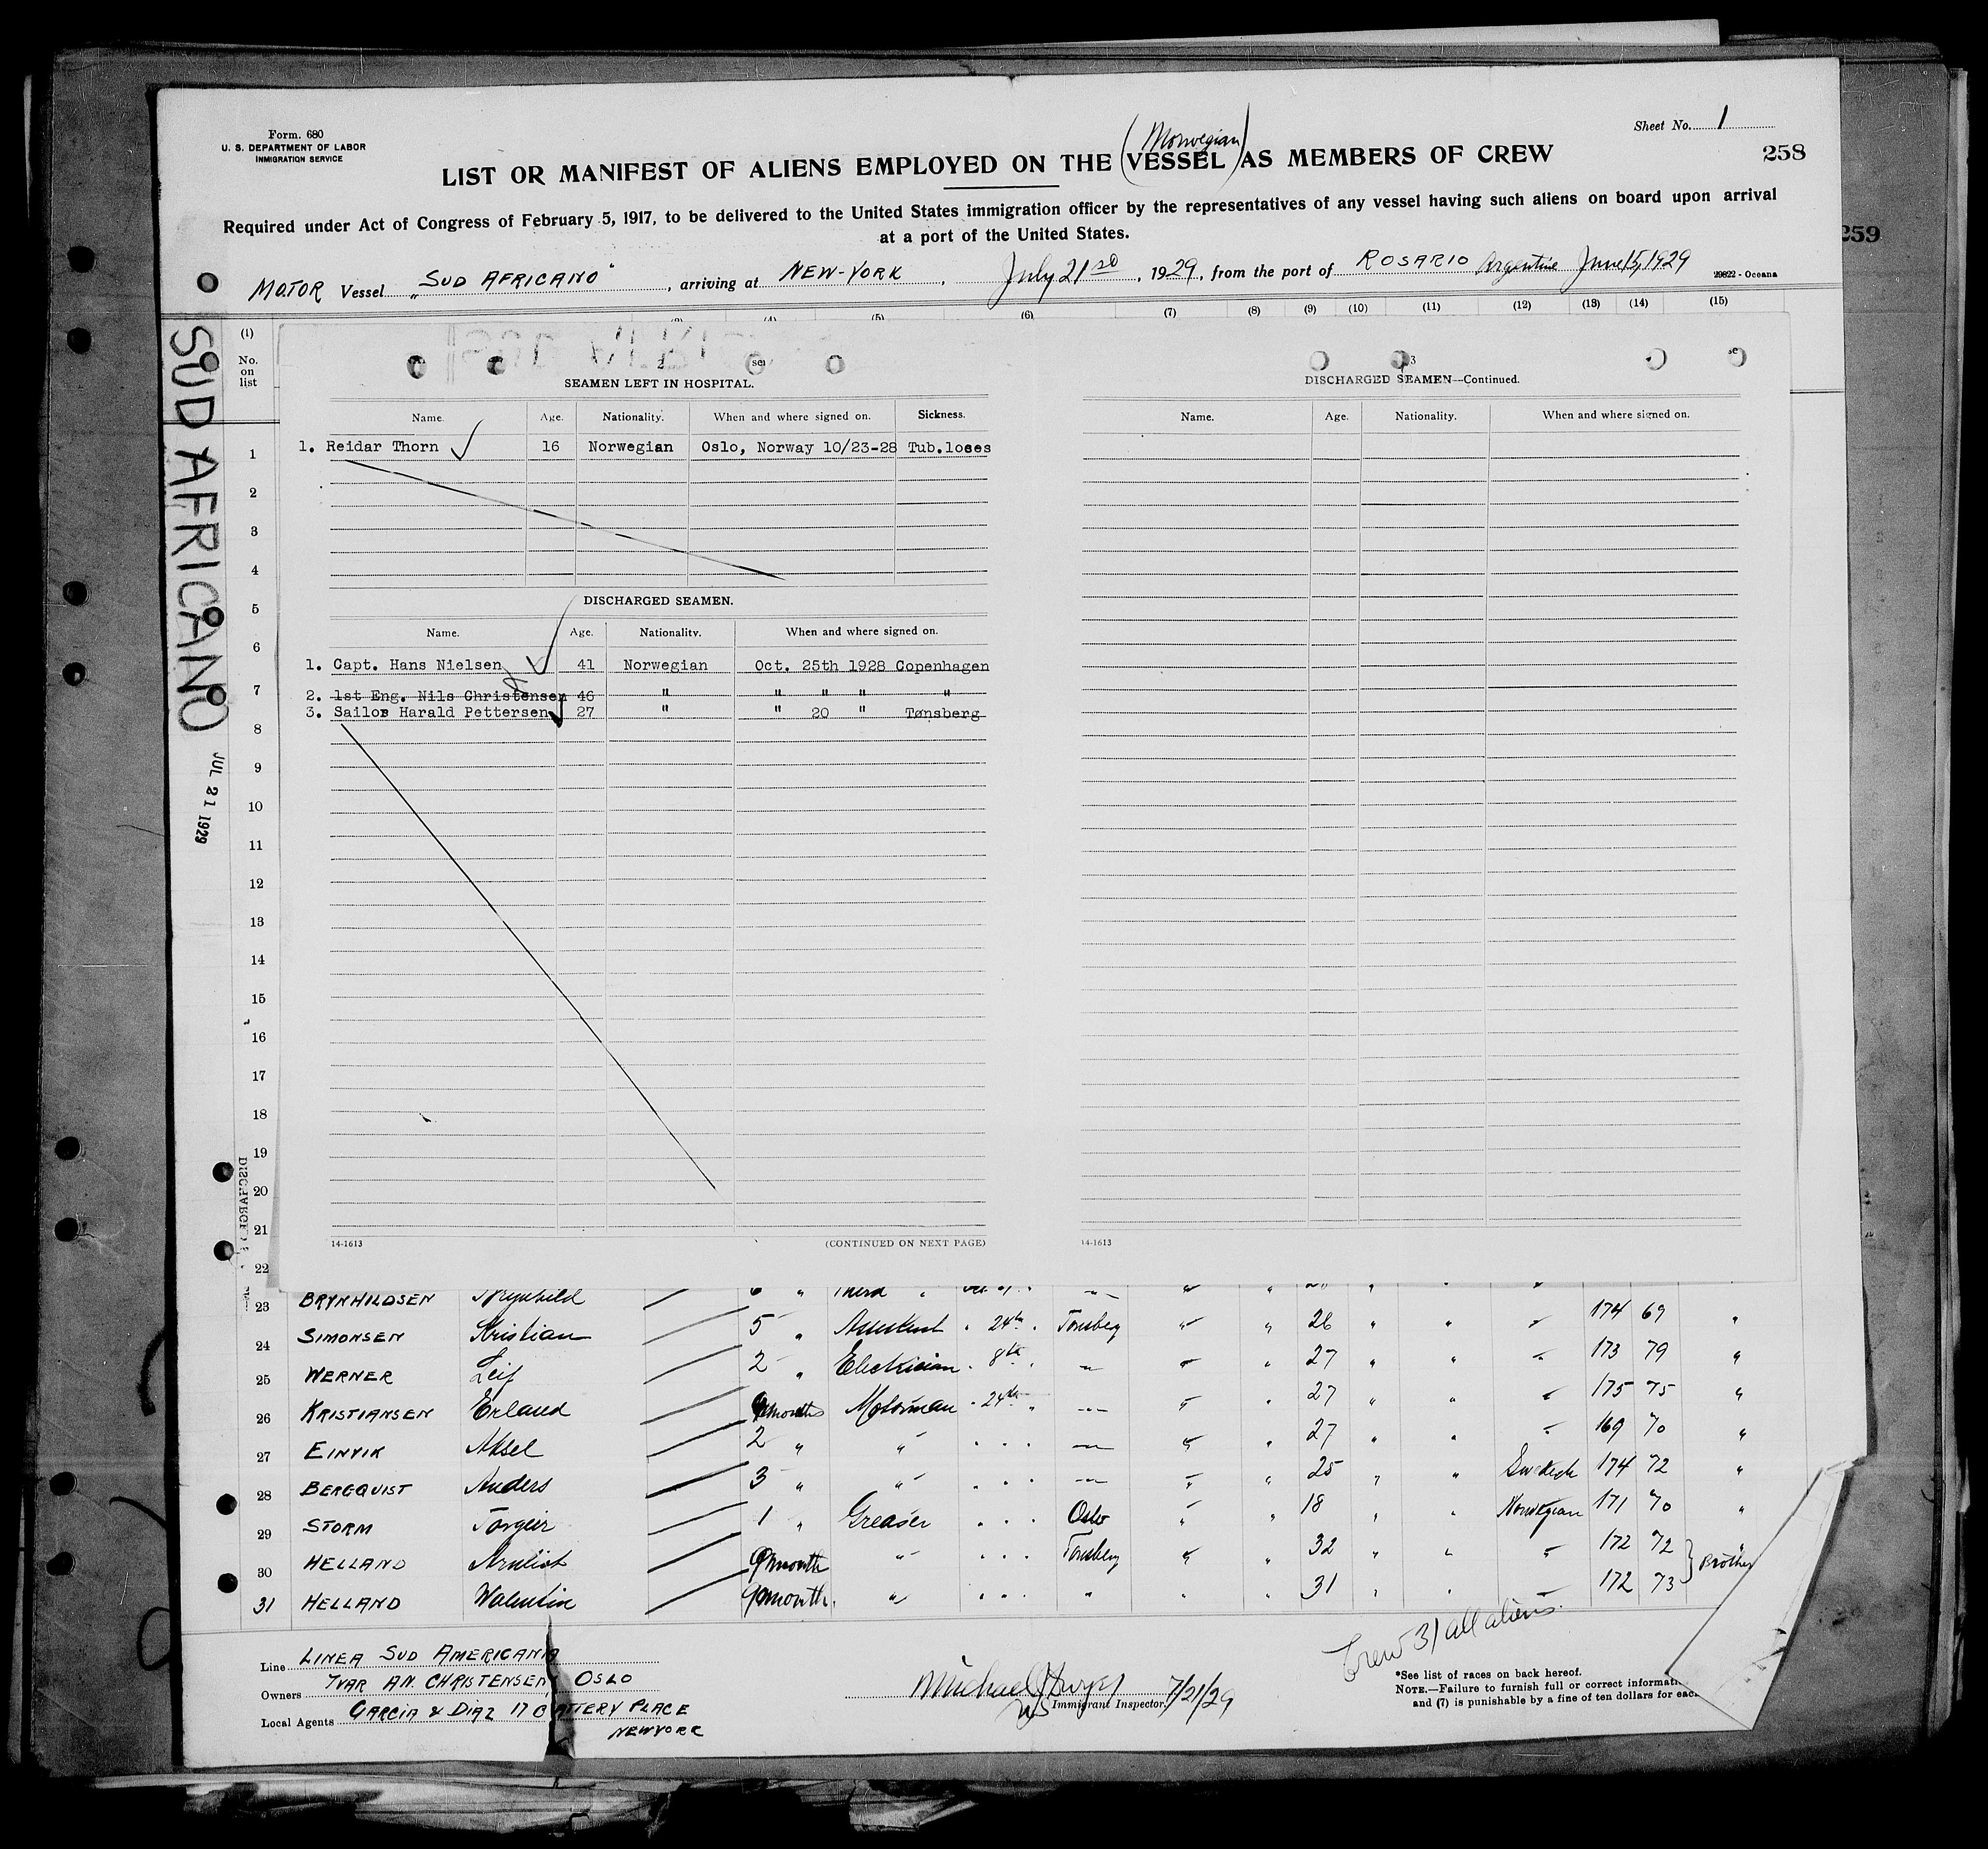 Form. 680
U. S. DEPARTMENT OF LABOR
INMIGRATION SERVICE
Sheet No. 1
258
259
(Norwegian)
LIST OR MANIFEST OF ALIENS EMPLOYED ON THE VESSEL AS MEMBERS OF CREW
Required under Act of Congress of February 5, 1917, to be delivered to the United States immigration officer by the representatives of any vessel having such aliens on board upon arrival
at a port of the United States.
MOTOR Vessel „SUD AFRICANO", arriving at NEW-YORK, July 21st, 1929, from the port of ROSARIO Argentine June 15, 1929
29822 - Oceana
(1) (3) (4) (5) (6) (7) (8) (9) (10) (11) (12) (13) (14) (15)
No. on list
SUD AFRICANO
JUL 21 1929
2
SEAMEN LEFT IN HOSPITAL.
Name. Age. Nationality. When and where signed on. Sickness.
1. Reidar Thorn 16 Norwegian Oslo, Norway 10/23-28 Tub.loses
DISCHARGED SEAMEN.
Name. Age. Nationality. When and where signed on.
1. Capt. Hans Nielsen 41 Norwegian Oct. 25th 1928 Copenhagen
2. 1st Eng. Nils Christensen 46 " " " " "
3. Sailor Harald Pettersen 27 " " 20 " Tønsberg
14-1613
(CONTINUED ON NEXT PAGE)
3
DISCHARGED SEAMEN—Continued.
Name. Age. Nationality. When and where signed on.
14-1613
1
2
3
4
5
6
7
8
9
10
11
12
13
14
15
16
17
18
19
20
21
22
23 BRYNHILDSEN Brynhild 6 " Third "
24 SIMONSEN Kristian 5 " Assistent " 24th " Tonsberg " " 26 " " " 174 69 "
25 WERNER Leif 2 " Electrician " 8th " " " " 27 " " " 173 79 "
26 KRISTIANSEN Erland 9 months Motorman " 24th " " " " 27 " " " 175 75 "
27 EINVIK Aksel 2 " " " " " " " " 27 " " " 169 70 "
28 BERGQUIST Anders 3 " " " " " " " " 25 " " Swedish 174 72 "
29 STORM Torgeir 1 " Greaser " " " Oslo " " 18 " " Norwegian 171 70 "
30 HELLAND Arnliot 9 month " " " " Tonsberg " " 32 " " " 172 72 "
31 HELLAND Valentin 9 month. " " " " " " " 31 " " 172 73
Brother
Crew 31 all aliens.
Line LINEA SUD AMERICANA
Owners IVAR AN. CHRISTENSEN, OSLO
Local Agents GARCIA & DIAZ 17 BATTERY PLACE
NEWYORK
Michael J Dwyer 7/21/29
Immigrant Inspector.
*See list of races on back hereof.
NOTE.—Failure to furnish full or correct informati
and (7) is punishable by a fine of ten dollars for eac